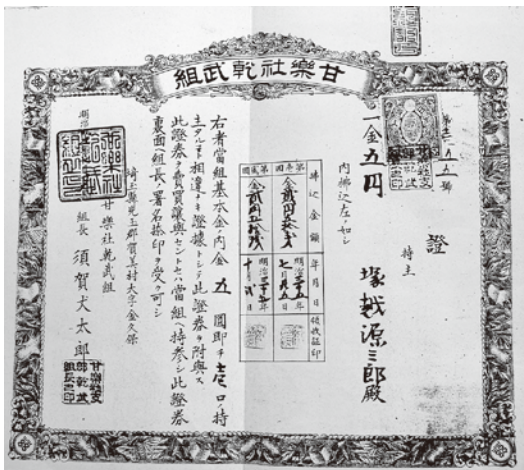 甘樂社乾武組
證
持主 塚越源三郎殿
一金五円
内拂込左ノ如シ
拂込金額 年月日 領收証印
第壹回 金貳円五拾戋 明治三十五年七月廿五日
第貳回 金貳円五拾戋 明治三十五年十月 日
右者當組基本金ノ内金五圓即チ壱口ノ持
主タルヿ相違ナキ證據トシテ此證券ヲ附與ス
此證券ヲ賣買讓與セントセハ當組ヘ持參シ此證券
裏面ニ組長ノ署名捺印ヲ受ク可シ
埼玉縣児玉郡賀美村大字金久保
甘樂社乾武組
組長 須賀犬太郎